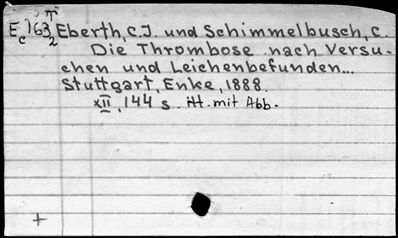 E c 163 2 Eberth, C.J. und Schimmelbusch, C.
Die Thrombose nach Versu-
chen und Leichenbefunden...
Stuttgart, Enke, 1888.
XII, 144 s. mit Abb.
+